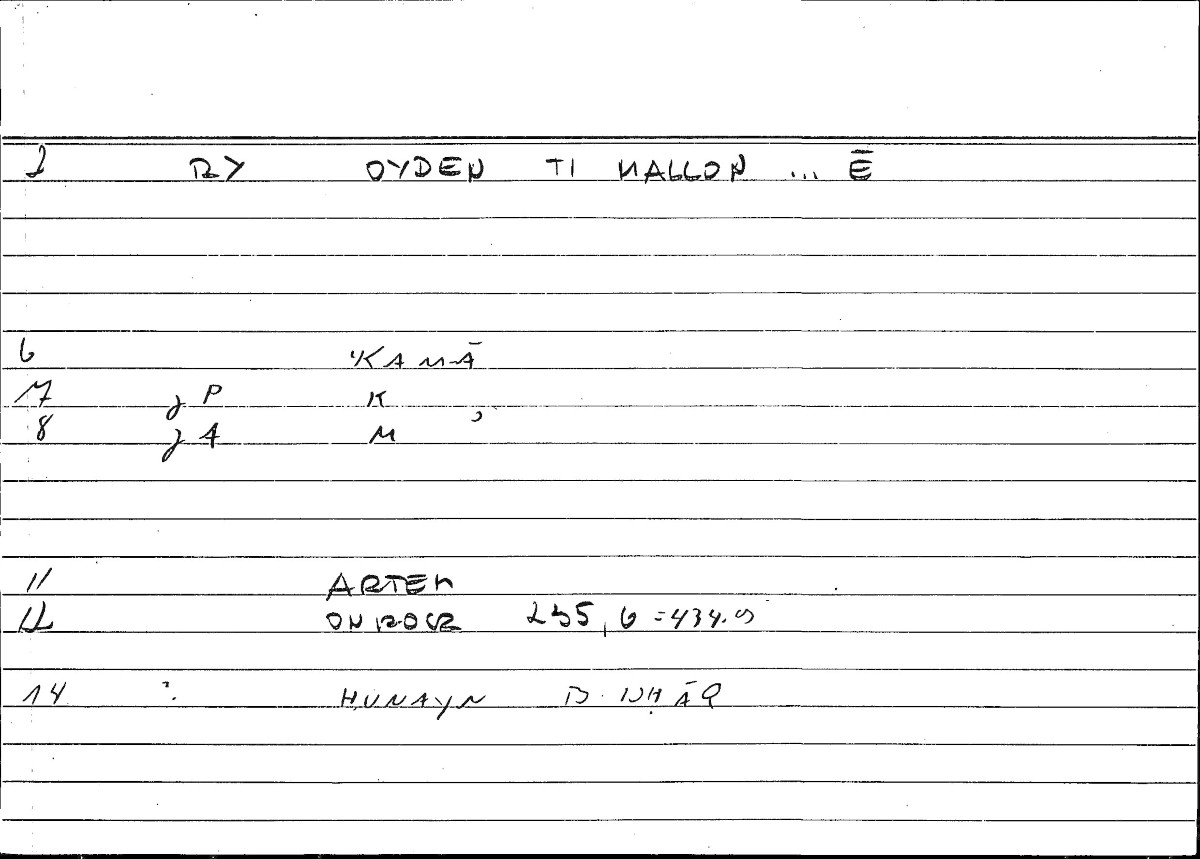 2 RY OYDEN TI MALLON ... Ē
6 'KAMĀ
17 P K
8 M
11 ARTEM
12 ONIROCR 235, 6 = 434.
14 HUNAYN B. ISḤĀQ